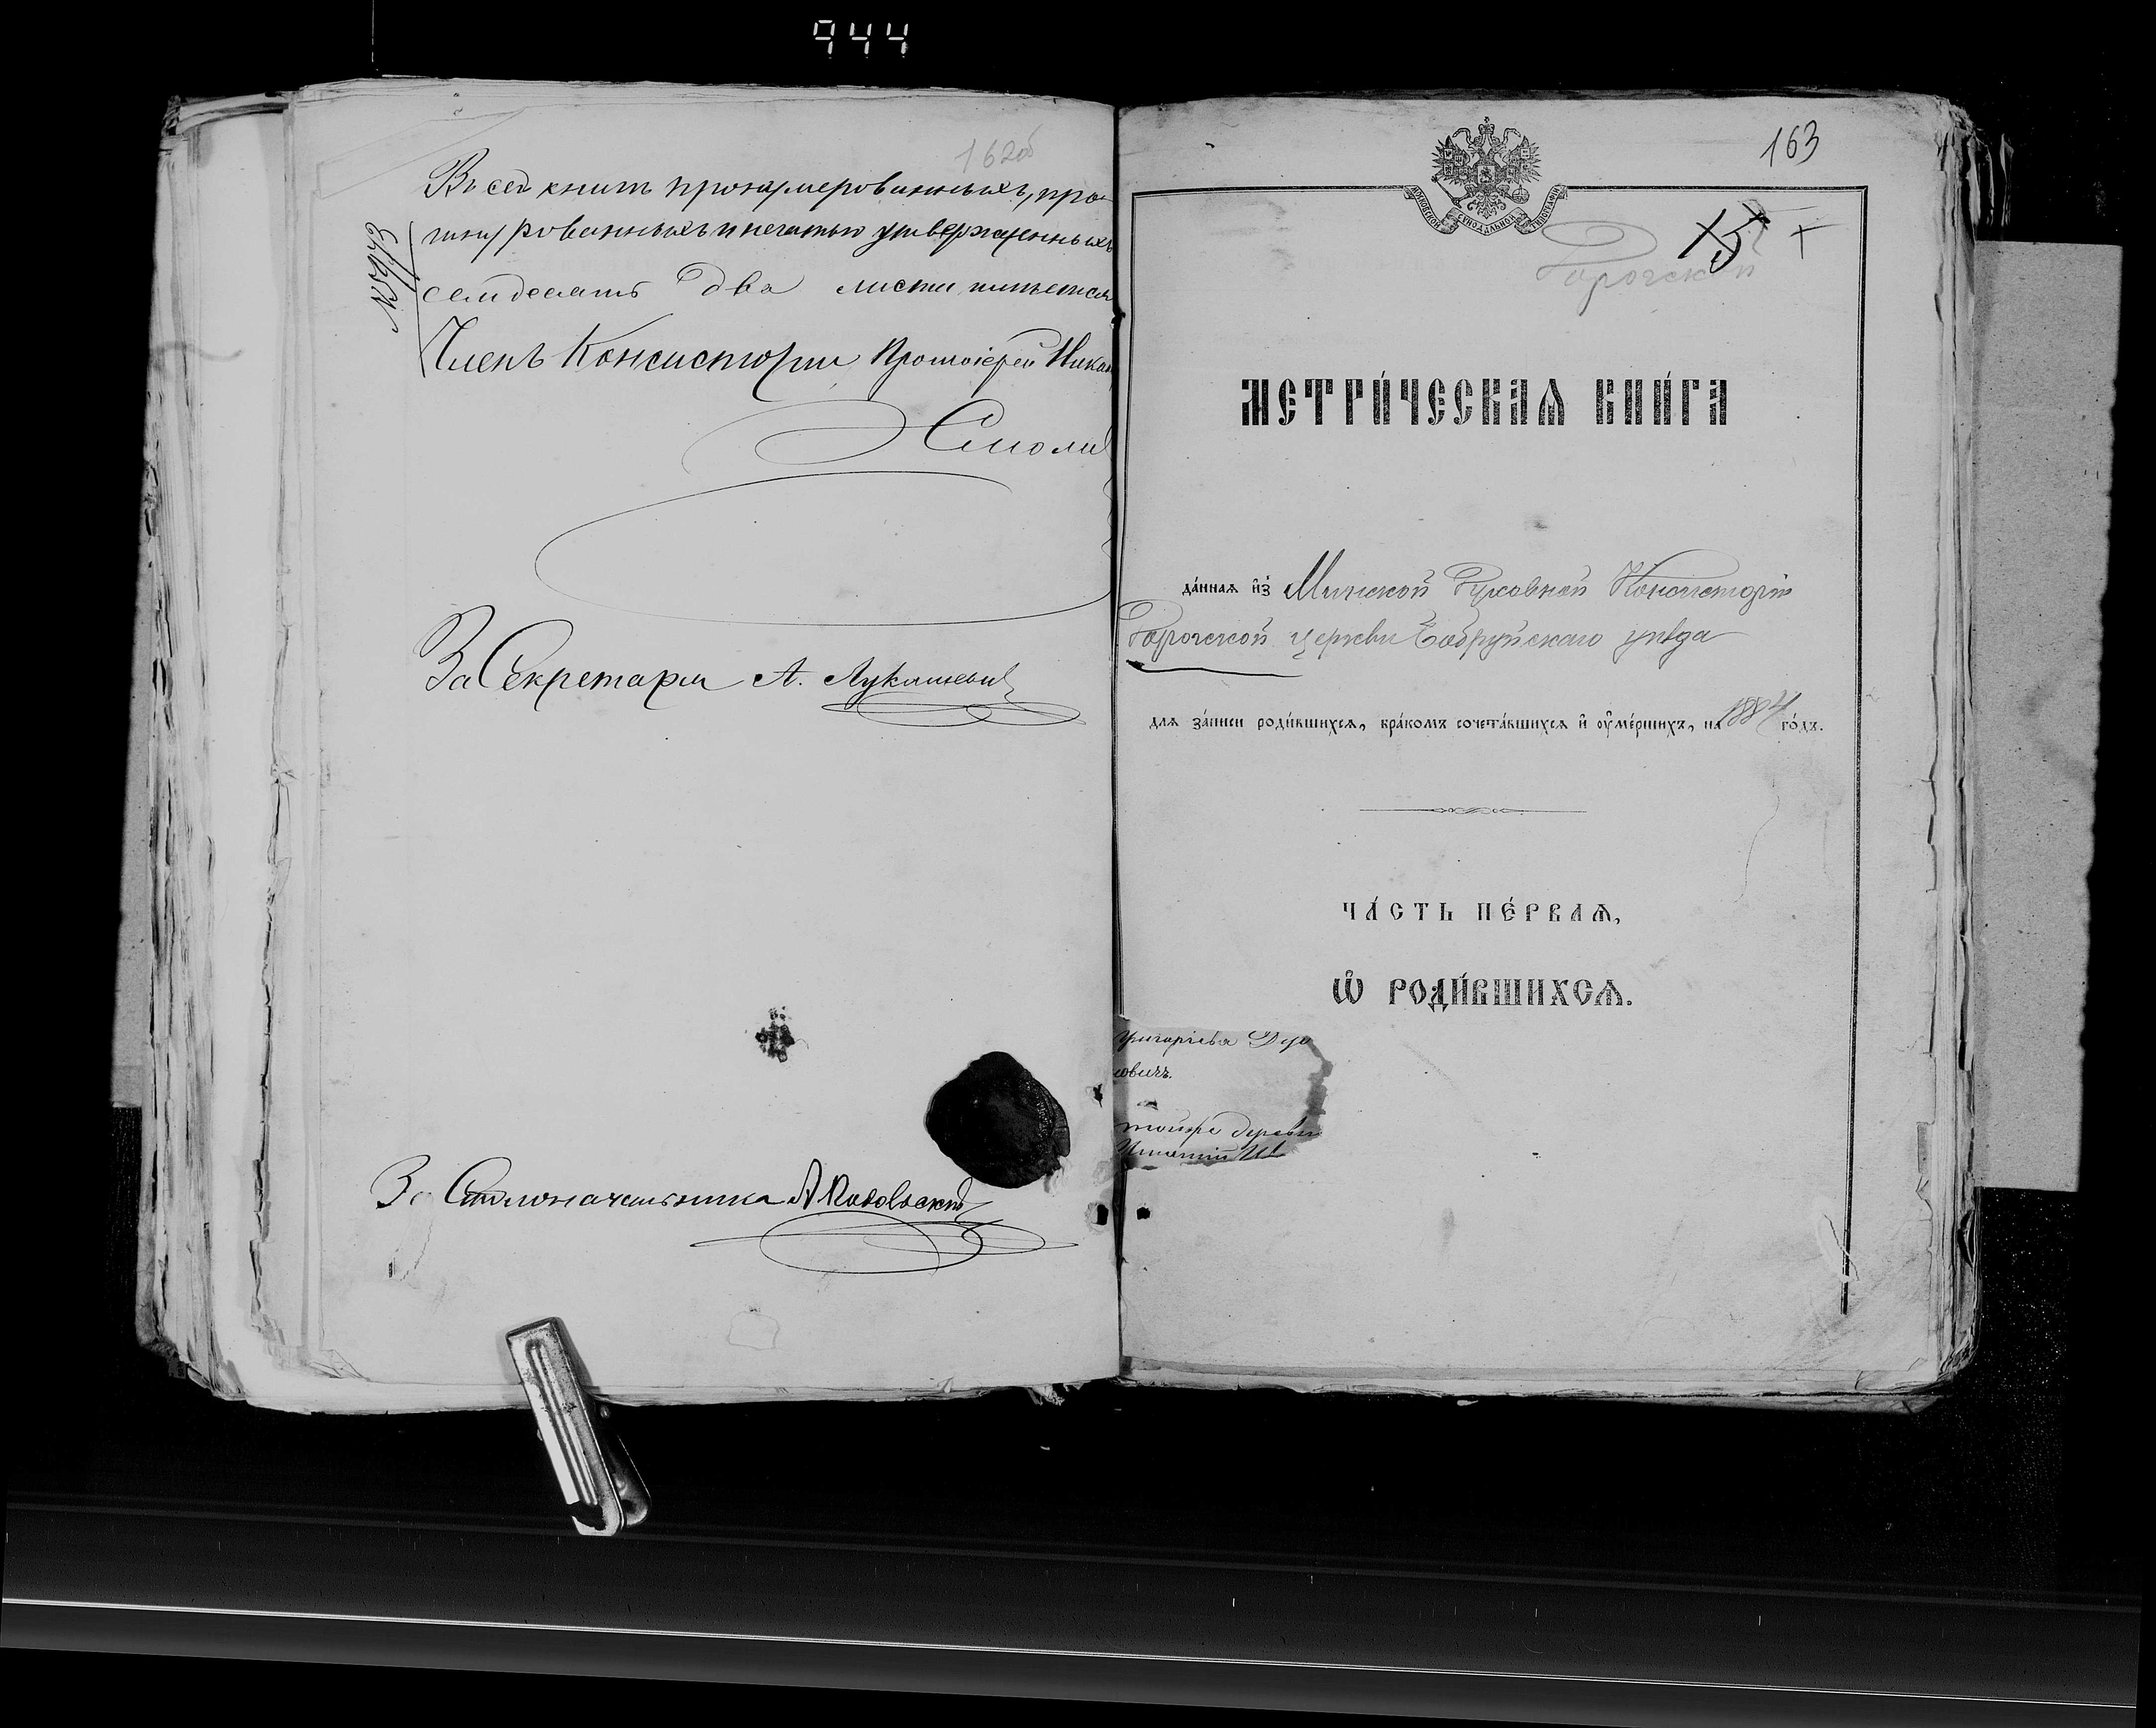 944
162об
Въ сей книгѣ пронумерованныхъ, про
шнурованныхъ и печатью утвержденныхъ
семдесятъ два листа имѣется
Членъ Консисторіи Протоіерей Никан
Смоли
За Секретаря А. Лукашевич
За Столоначальника А
163
15
МОСКОВСКОЙ СѴНОДАЛЬНОЙ ТИПОГРАФІИ
МЕТРИ́ЧЕСКАѦ КНИ́ГА
да́ннаѧ и҆з̾ Минской Духовной Консисторіи
церкви Бобруйскаго уѣзда
длѧ за́писи роди́вшихсѧ, бра́комъ сочета́вшихсѧ и҆ ᲂу҆ме́ршихъ, на 1884 го́дъ.
ЧА́СТЬ ПЕ́РВАѦ,
Ѽ РОДИ́ВШИХСѦ.
Григоріева
овичъ.
деревн